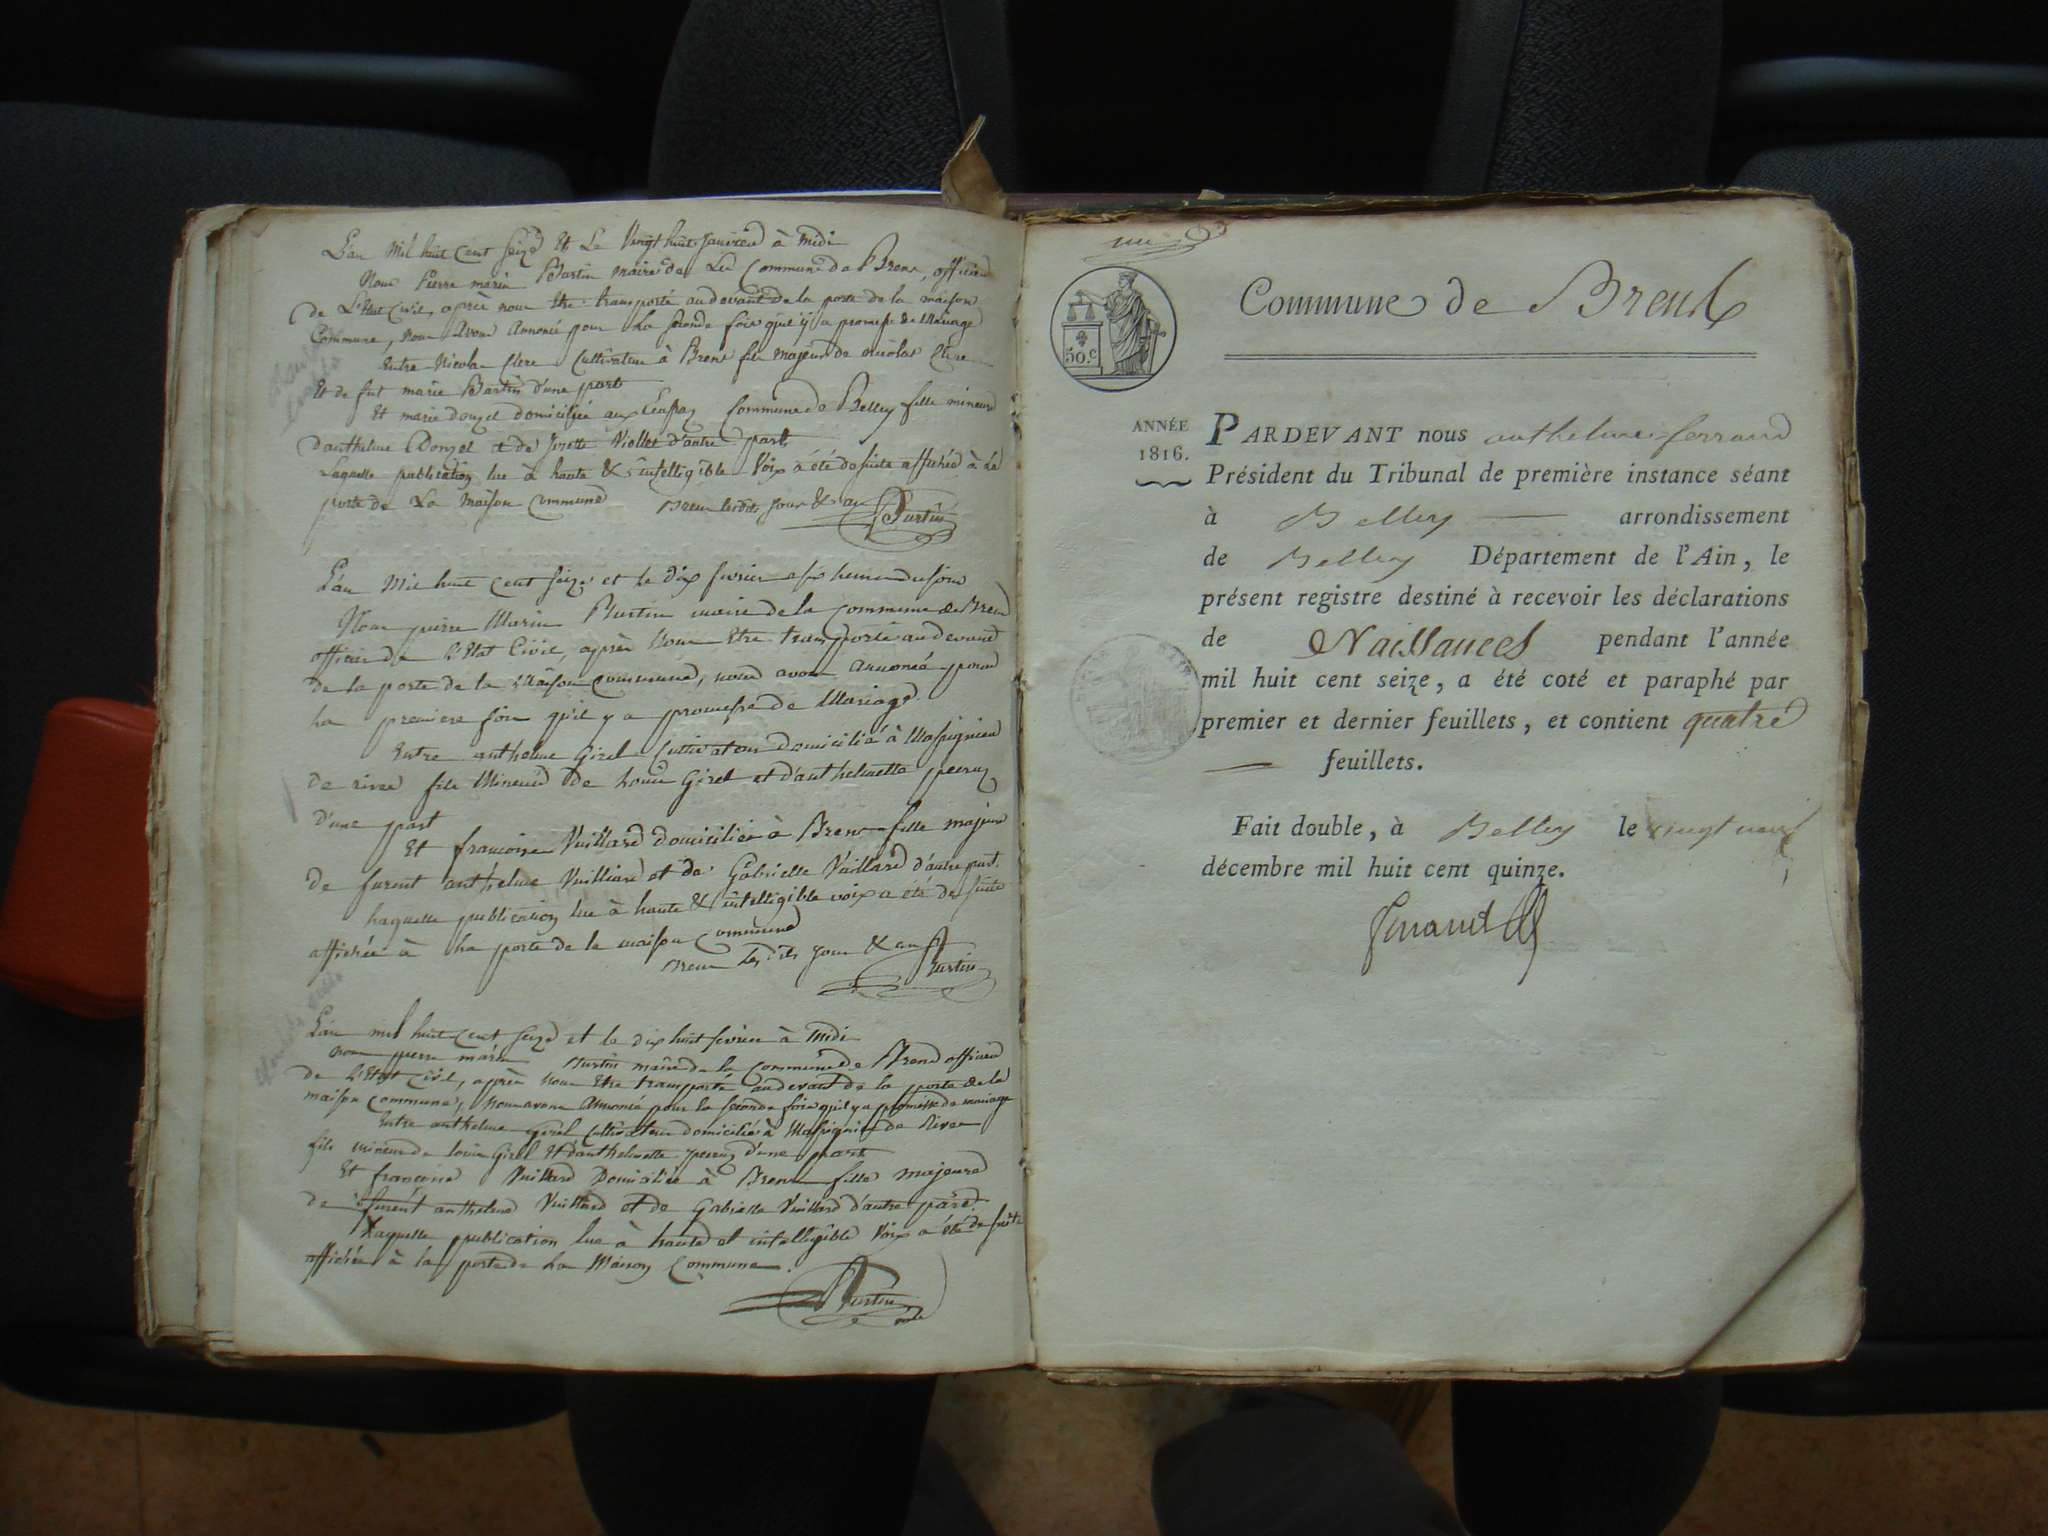 L'an mil huit cent seize et Le vingt huit Janvier à midi
Nous Pierre marin Burtin maire de La Commune de Brens, officier
de L'Etat Civil, après nous être transporté au devant de la porte de la maison
Commune, nous avons annoncé pour La seconde fois qu'il y a promesse de Mariage
Entre Nicolas Clerc Cultivateur à Brens fils majeur de nicolas Clerc
Et de fut marie Bartin d'une part
Et marie donzel domiciliée aux Commune de Belley fille mineure
d'anthelme Donzel et de Josette Viollet d'autre part
Laquelle publication lue à haute & intelligible Voix a été de suite affichée à La
porte de La Maison Commune Brens lesdits jour & an
Burtin
L'an Mil huit cent seize et le dix fevrier
Nous pierre Marin Burtin maire de la Commune de Brens
officier de L'Etat Civil, après nous Etre transporté au devant
de la porte de la Maison Commune, nous avons annoncé pour
La premiere fois qu'il y a promesse de Mariage
Entre anthelme Girel Cultivateur domicilié à Massignieu
de rives fils Mineur de Louis Girel et d'anthelmette peruz
D'une part
Et francoise Vuillard domiciliée à Brens fille majeure
de furent anthelme Vuilliard et de Gabrielle Vuillard d'autre part.
Laquelle publication lue à haute & intelligible voix a été de suite
affichée à La porte de la maison Commune
Brens Les dits jour & an
Burtin
L'an mil huit Cent seize et le dix huit fevrier à midi
nous pierre marin Burtin maire de la Commune de Brens officier
de L'Etat Civil, après nous Etre transporté au devant de la porte de la
maison Commune, nous avons Annoncé pour la seconde fois qu'il y a promesse de mariage
Entre anthelme Girel Cultivateur domicilié à Massignieu de Rives
fils mineur de Louis Girel Et d'anthelmette peruz d'une part
Et françoise Vuillard Domiciliée à Brens fille majeure
de furent anthelme Vuillard et de Gabrielle Vuillard d'autre part.
Laquelle publication lue à haute et intelligible Voix a été de suite
affichée à la porte de La Maison Commune.
Burtin
50.c
Commune de Brens
ANNÉE
1816.
PARDEVANT nous anthelme ferrand
Président du Tribunal de première instance séant
à Belley arrondissement
de Belley Département de l'Ain, le
présent registre destiné à recevoir les déclarations
de Naissances pendant l'année
mil huit cent seize, a été coté et paraphé par
premier et dernier feuillets, et contient quatre
feuillets.
Fait double, à Belley le vingt neuf
décembre mil huit cent quinze.
Ferrand